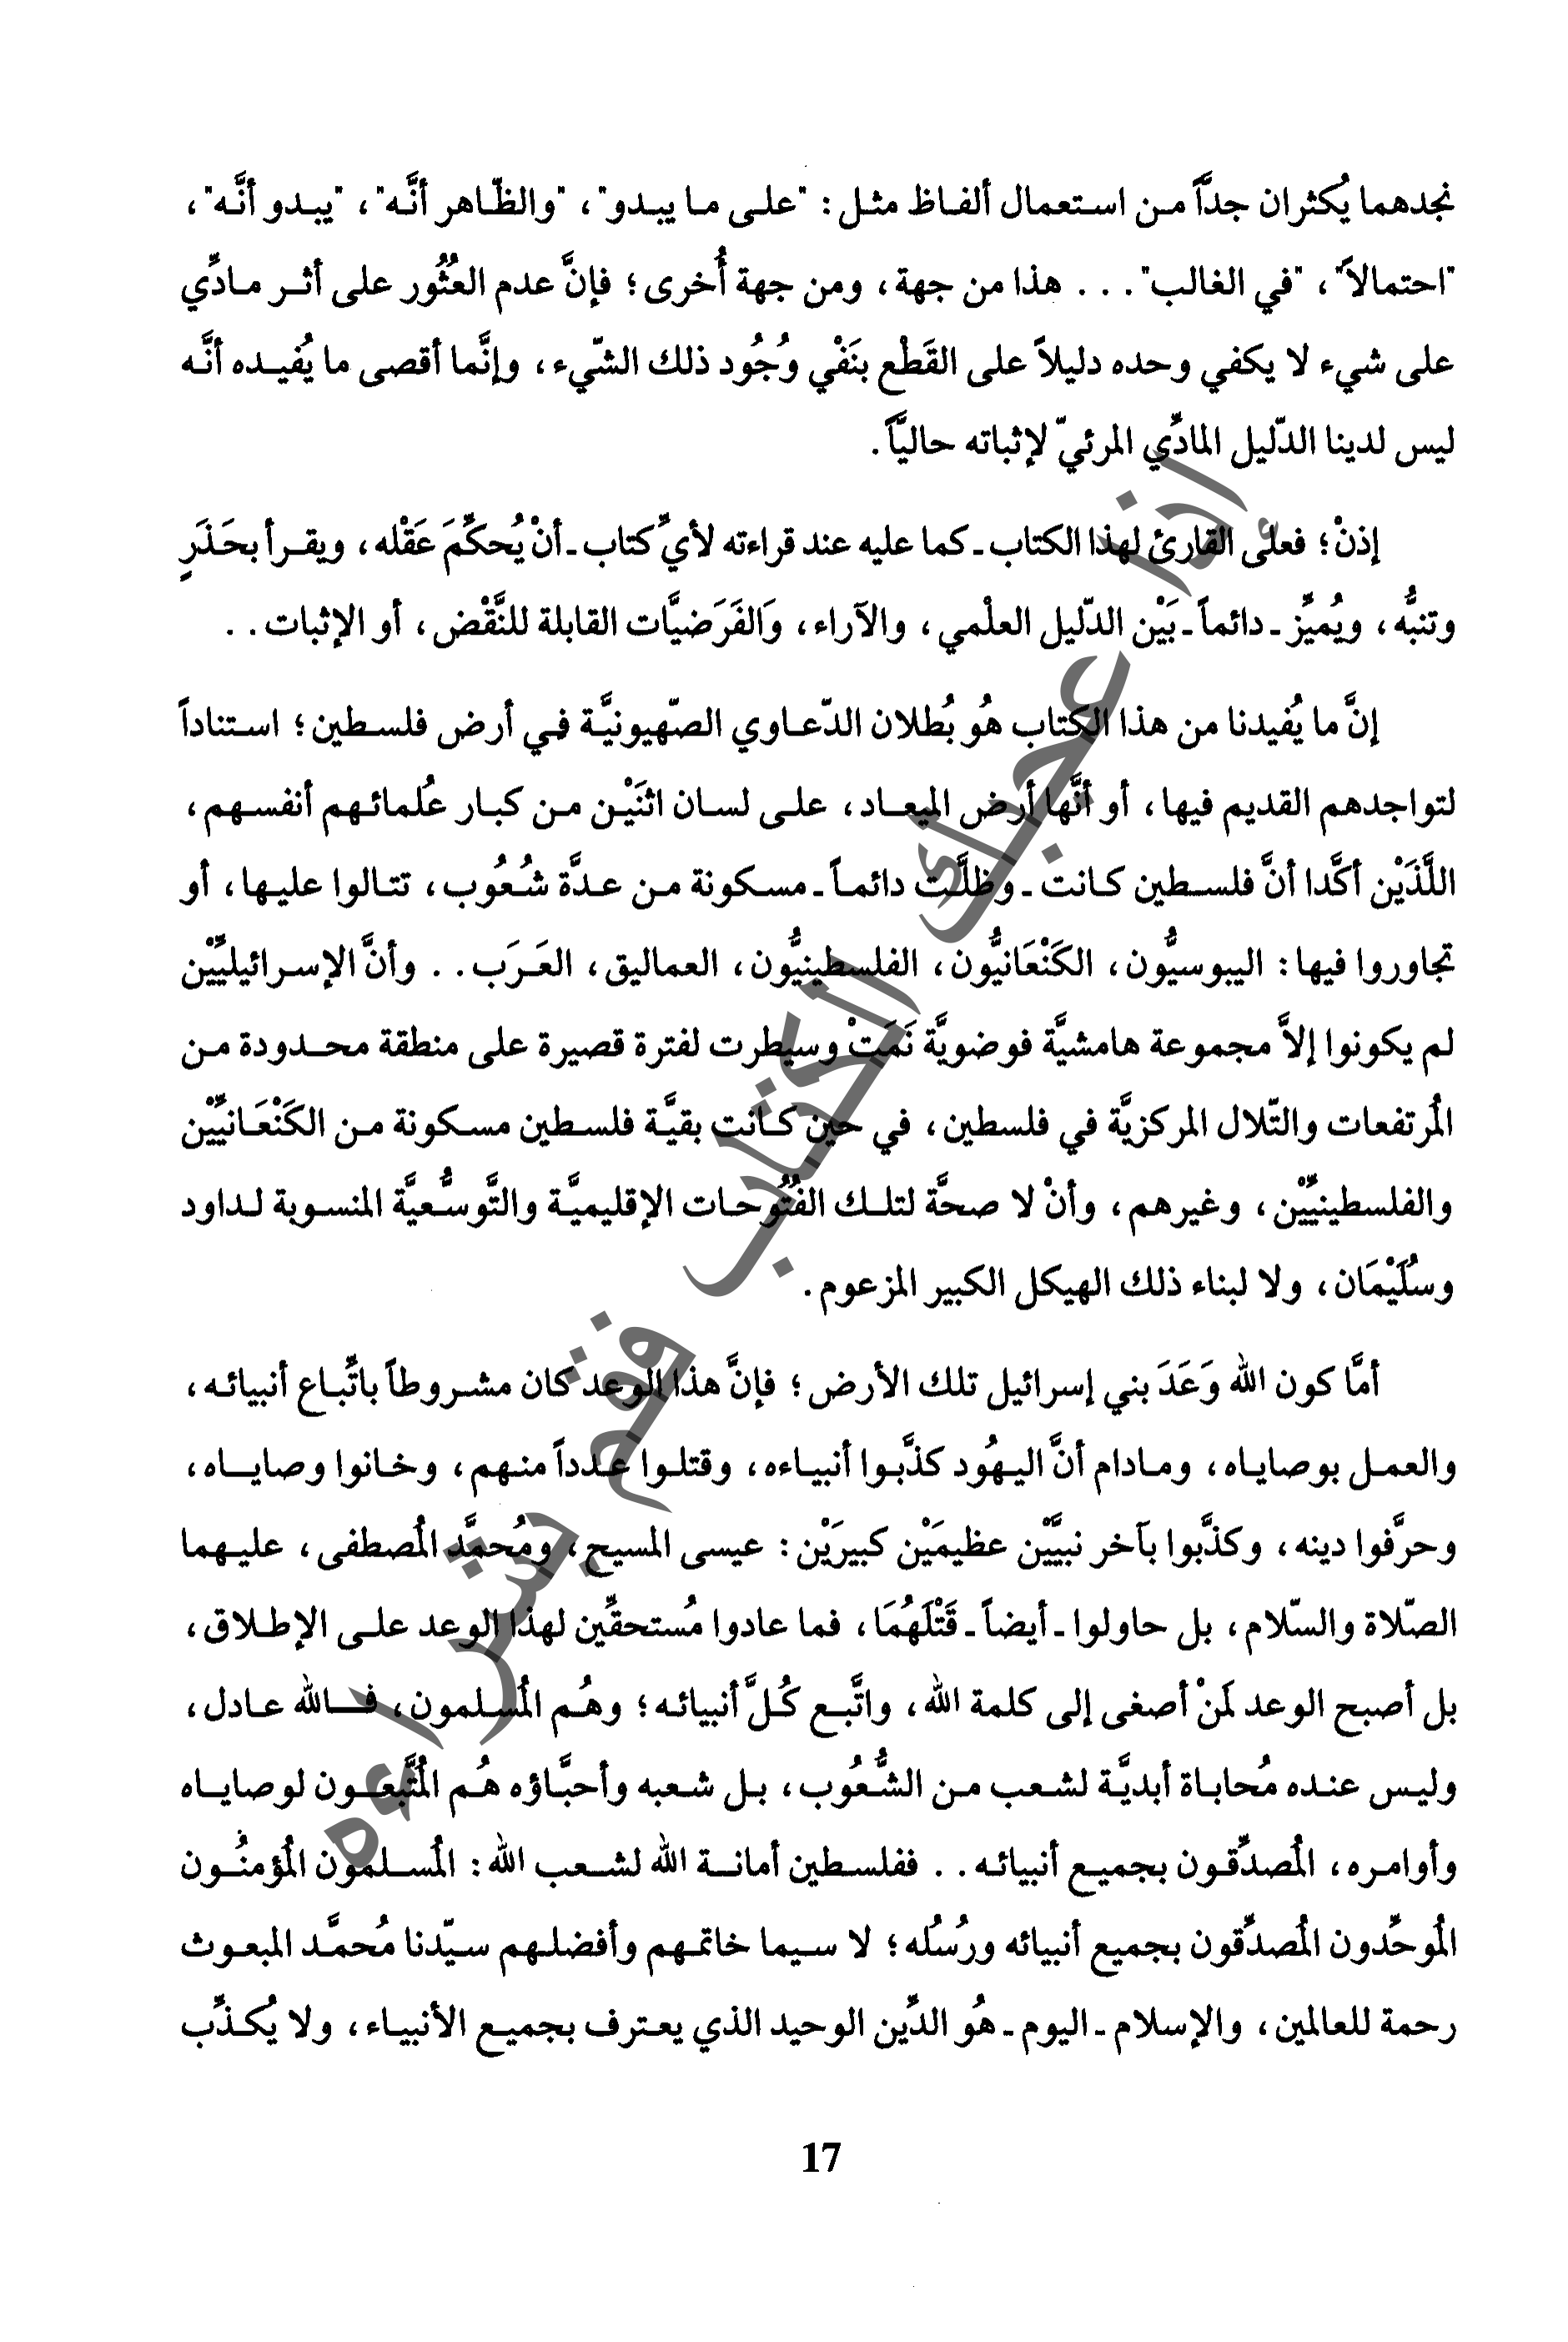 نجدهما يُكثران جدَّاً من استعمال ألفاظ مثل: "على ما يبدو"، "والظّاهر أنَّه"، "يبدو أنَّه"،
"احتمالاً"، "في الغالب". . . هذا من جهة، ومن جهة أُخرى؛ فإنَّ عدم العُثُور على أثر مادِّي
على شيء لا يكفي وحده دليلاً على القَطْع بنَفْي وُجُود ذلك الشّيء، وإنَّما أقصى ما يُفيده أنَّه
ليس لدينا الدّليل المادِّي المرئيّ لإثباته حاليَّاً.
إذنْ؛ فعلى القارئ لهذا الكتاب ـ كما عليه عند قراءته لأيِّ كتاب ـ أنْ يُحكِّمَ عَقْله، ويقرأ بحَذَرٍ
وتنبُّه، ويُميِّز ـ دائماً ـ بَيْن الدّليل العلْمي، والآراء، وَالفَرَضيَّات القابلة للنَّقْض، أو الإثبات. .
إنَّ ما يُفيدنا من هذا الكتاب هُو بُطلان الدّعاوي الصّهيونيَّة في أرض فلسطين؛ استناداً
لتواجدهم القديم فيها، أو أنَّها أرض الميعاد، على لسان اثنَيْن من كبار عُلمائهم أنفسهم،
اللَّذَيْن أكَّدا أنَّ فلسطين كانت ـ وظلَّت دائماً ـ مسكونة من عدَّة شُعُوب، تتالوا عليها، أو
تجاوروا فيها: اليبوسيُّون، الكَنْعَانيُّون، الفلسطينيُّون، العماليق، العَرَب. . وأنَّ الإسرائيليِّيْن
لم يكونوا إلاَّ مجموعة هامشيَّة فوضويَّة نَمَتْ وسيطرت لفترة قصيرة على منطقة محدودة من
المُرتفعات والتّلال المركزيَّة في فلسطين، في حين كانت بقيَّة فلسطين مسكونة من الكَنْعَانيِّيْن
والفلسطينيِّيْن، وغيرهم، وأنْ لا صحَّة لتلك الفُتُوحات الإقليميَّة والتَّوسُّعيَّة المنسوبة لداود
وسُلَيْمَان، ولا لبناء ذلك الهيكل الكبير المزعوم.
أمَّا كون الله وَعَدَ بني إسرائيل تلك الأرض؛ فإنَّ هذا الوعد كان مشروطاً باتِّباع أنبيائه،
والعمل بوصاياه، ومادام أنَّ اليهُود كذَّبوا أنبياءه، وقتلوا عدداً منهم، وخانوا وصاياه،
وحرَّفوا دينه، وكذَّبوا بآخر نبيَّيْن عظيمَيْن كبيرَيْن: عيسى المسيح، ومُحمَّد المُصطفى، عليهما
الصّلاة والسّلام، بل حاولوا ـ أيضاً ـ قَتْلَهُمَا، فما عادوا مُستحقِّين لهذا الوعد على الإطلاق،
بل أصبح الوعد لَمَنْ أصغى إلى كلمة الله، واتَّبع كُلَّ أنبيائه؛ وهُم المُسلمون، فالله عادل،
وليس عنده مُحاباة أبديَّة لشعب من الشُّعُوب، بل شعبه وأحبَّاؤه هُم المُتَّبعون لوصاياه
وأوامره، المُصدِّقون بجميع أنبيائه. . ففلسطين أمانة الله لشعب الله: المُسلمون المُؤمنُون
المُوحِّدون المُصدِّقون بجميع أنبيائه ورُسُله؛ لا سيما خاتمهم وأفضلهم سيّدنا مُحمَّد المبعوث
رحمة للعالمين، والإسلام ـ اليوم ـ هُو الدِّين الوحيد الذي يعترف بجميع الأنبياء، ولا يُكذِّب
17
إذا عجبك الكتاب فقم بشراءه